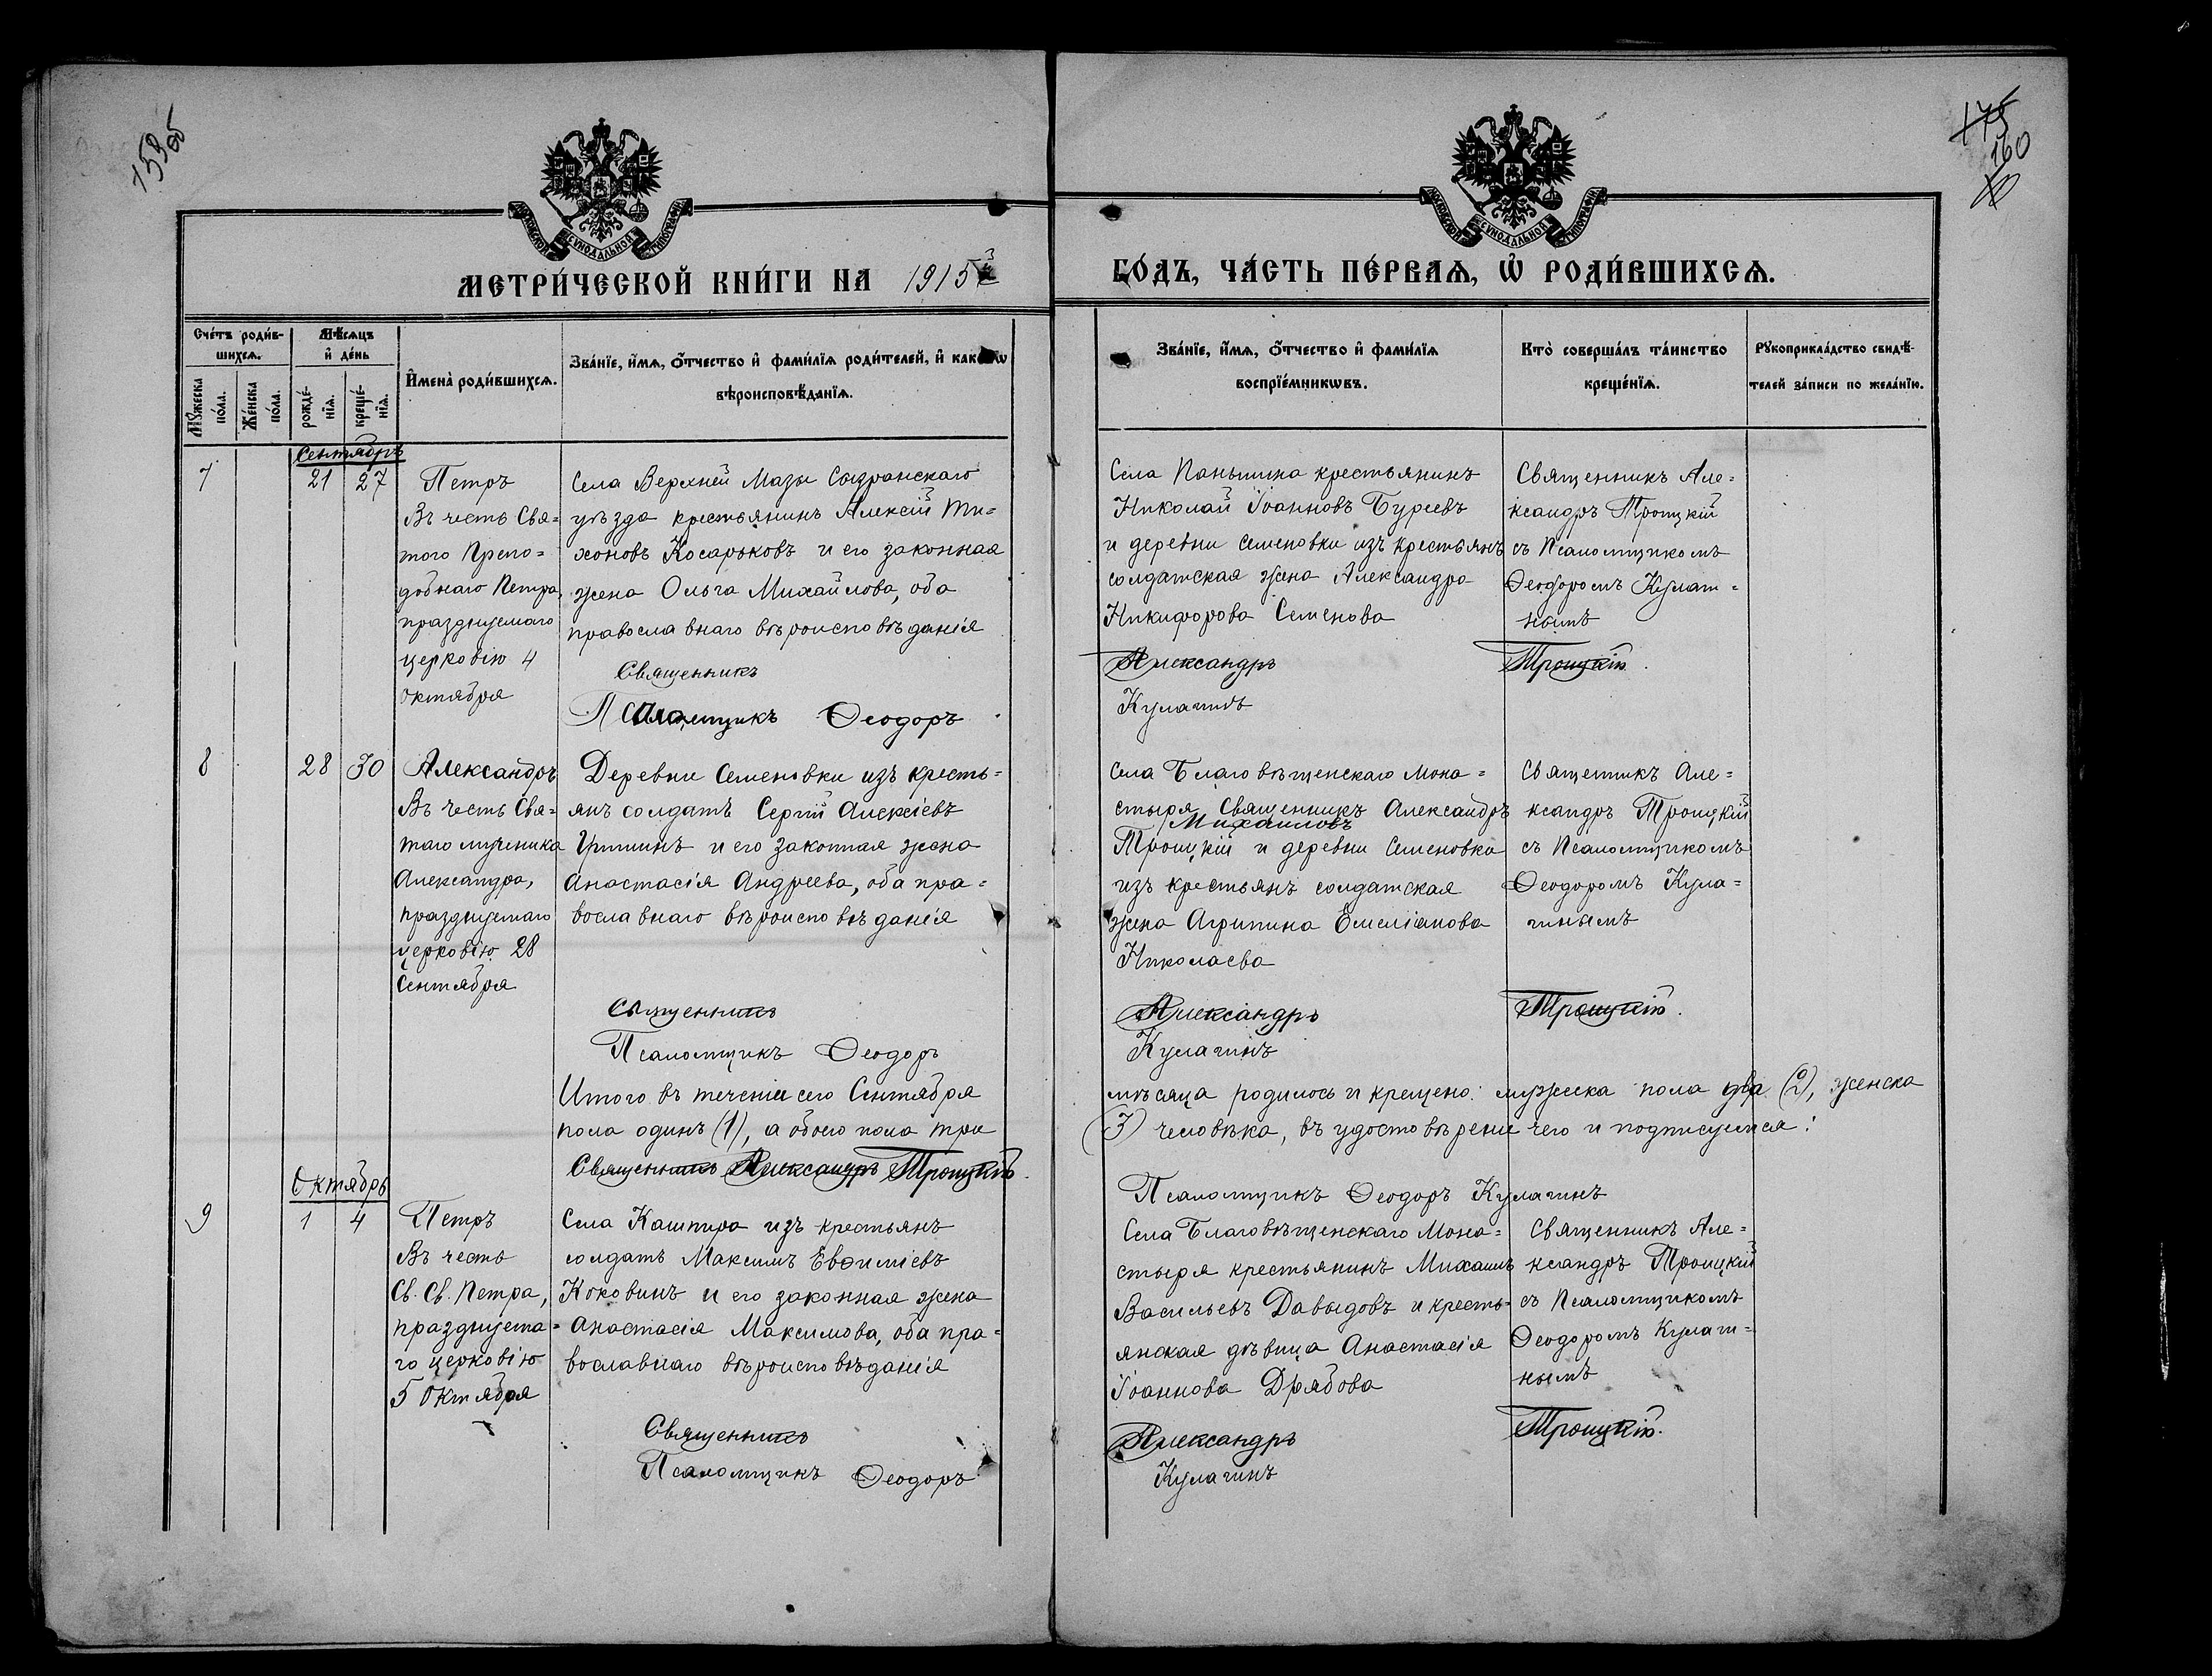 159об
175
160
МОСКОВСКОЙ СѴНОДАЛЬНОЙ ТИПОГРАФІИ
МОСКОВСКОЙ СѴНОДАЛЬНОЙ ТИПОГРАФІИ
МЕТРИ́ЧЕСКОЙ КНИ́ГИ НА 1915й
ГО́ДЪ, ЧА́СТЬ ПЕ́РВАѦ, Ѡ҆ РОДИ́ВШИХСѦ.
Сче́тъ роди́в-
шихсѧ.
Мꙋ́жеска по́ла.
Же́нска по́ла.
Мѣ́сѧцъ
и҆ де́нь
рожде́-
нїѧ.
креще́-
нїѧ.
И҆мена̀ роди́вшихсѧ.
Зва́нїе, и҆́мѧ, ѻ҆́тчество и҆ фами́лїѧ роди́телей, и҆ како́гѡ
вѣроисповѣ́данїѧ.
Зва́нїе, и҆́мѧ, ѻ҆́тчество и҆ фами́лїѧ
воспрїе́мникѡвъ.
Кто̀ соверша́лъ та́инство
креще́нїѧ.
Рꙋкоприкла́дство свидѣ́-
телей за́писи по жела́нїю.
Сентябрь
7
21 27
Петръ
Въ честь Свя=
того Препо=
добнаго Петра,
празднуемаго
церковію 4
Октября
Села Верхней Мазы Сызранскаго
уѣзда крестьянинъ Алексій Ти=
хоновъ Косарьковъ и его законная
жена Ольга Михайлова, оба
православнаго вѣроисповѣданія
Священникъ
Псаломщикъ Ѳеодоръ
Села Паньшина крестьянинъ
Николай Іоанновъ Буреевъ
и деревни Семеновки изъ крестьянъ
солдатская жена Александра
Никифорова Семенова
Александръ
Кулагинъ
Священникъ Але=
ксандръ Троицкій
съ Псаломщикомъ
Ѳеодоромъ Кулаги=
нымъ
Троицкій.
8
28 30
Александръ
Въ честь Свя=
таго мученика
Александра,
празднуемаго
церковію 28
Сентября
Деревни Семеновки изъ кресть=
янъ солдатъ Сергій Алексіевъ
Гришинъ и его законная жена
Анастасія Андреева, оба пра=
вославнаго вѣроисповѣданія
Священникъ
Псаломщикъ Ѳеодоръ
Села Благовѣщенскаго Мона=
стыря Священникъ Александръ
Михаиловъ
Троицкій и деревни Семеновки
изъ крестьянъ солдатская
жена Агрипина Емеліанова
Николаева
Александръ
Кулагинъ
Священникъ Але=
ксандръ Троицкій
съ Псаломщикомъ
Ѳеодоромъ Кула=
гинымъ
Троицкій.
Итого въ теченіи сего Сентября
мѣсяца родилось и крещено: мужеска пола два (2), женска
пола одинъ (1), а обоего пола три
(3) человѣка, въ удостовѣреніи чего и подписуемся:
Священникъ Александръ Троицкій.
Псаломщикъ Ѳеодоръ Кулагинъ
Октябрь
9
1 4
Петръ
Въ честь
Св. Св. Петра,
празднуема=
го церковію
5 Октября
Села Кашпира изъ крестьянъ
солдатъ Максимъ Евѳиміевъ
Коковинъ и его законная жена
Анастасія Максимова, оба пра=
вославнаго вѣроисповѣданія
Священникъ
Псаломщикъ Ѳеодоръ
Села Благовѣщенскаго Мона=
стыря крестьянинъ Михаилъ
Васильевъ Давыдовъ и кресть=
янская дѣвица Анастасія
Іоаннова Дрябова
Александръ
Кулагинъ
Священникъ Але=
ксандръ Троицкій
съ Псаломщикомъ
Ѳеодоромъ Кулаги=
нымъ
Троицкій.